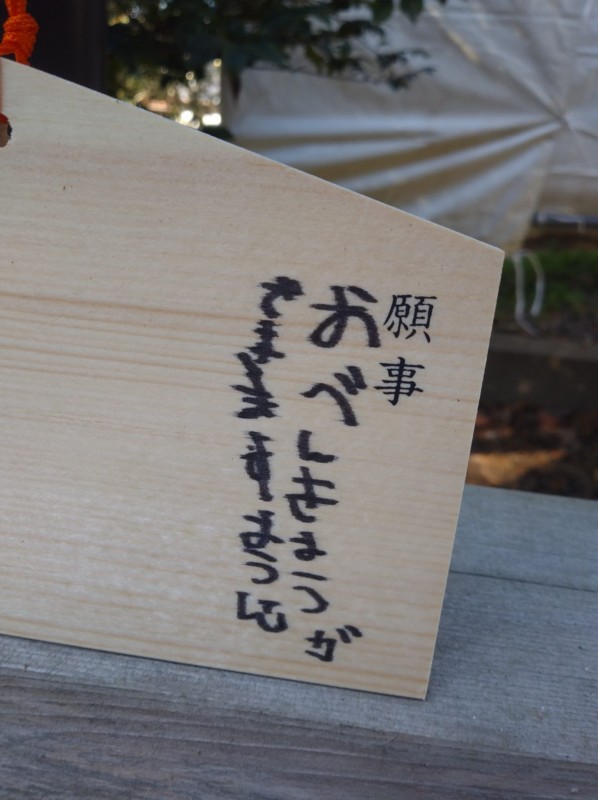 願事
おべんきょうが
ますように